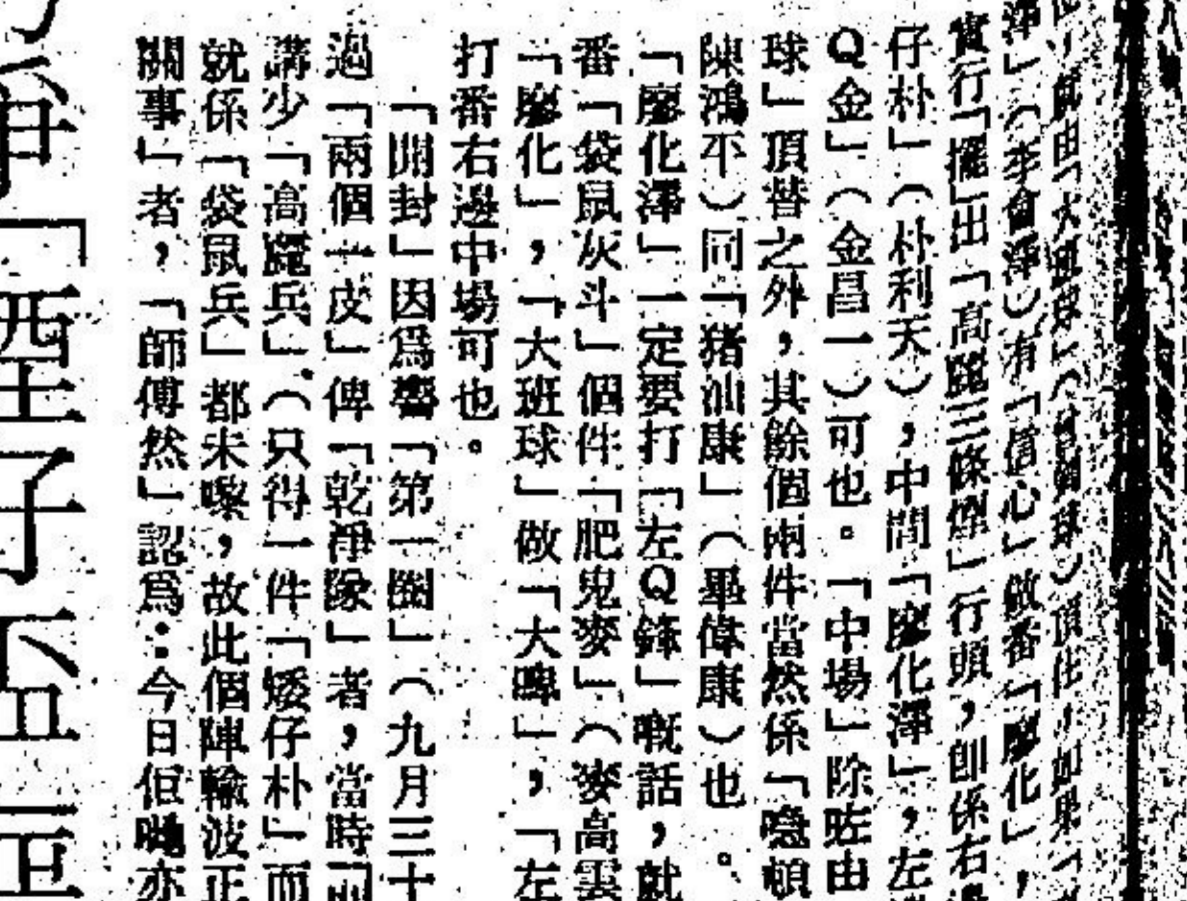 由「大班球」（曾錦球）頂住，如果「
澤」（李會澤）有「信心」做番「廖化」，
實行「擺」出「高麗三條煙」行頭，卽係右邊
仔朴」（朴利天），中間「廖化澤」，左
Q金」（金昌一）可也。「中場」除咗由
球」頂替之外，其餘個兩件當然係「
陳鴻平）同「猪油康」（畢偉康）也。
「廖化澤」一定要打「左Q鋒」嘅話，就
番「袋鼠灰斗」個件「肥鬼麥」（麥高雲
「廖化」，「大班球」做「大啤」，「左
打番右邊中場可也。
「開封」因爲響「第一圈」（九月三十
過「兩個一皮」俾「乾淨隊」者，當時
講少「高麗兵」（只得一件「矮仔朴」而
就係「袋鼠兵」都未嚟，故此個陣輸波正
關事」者，「師傅然」認爲：今日佢哋亦